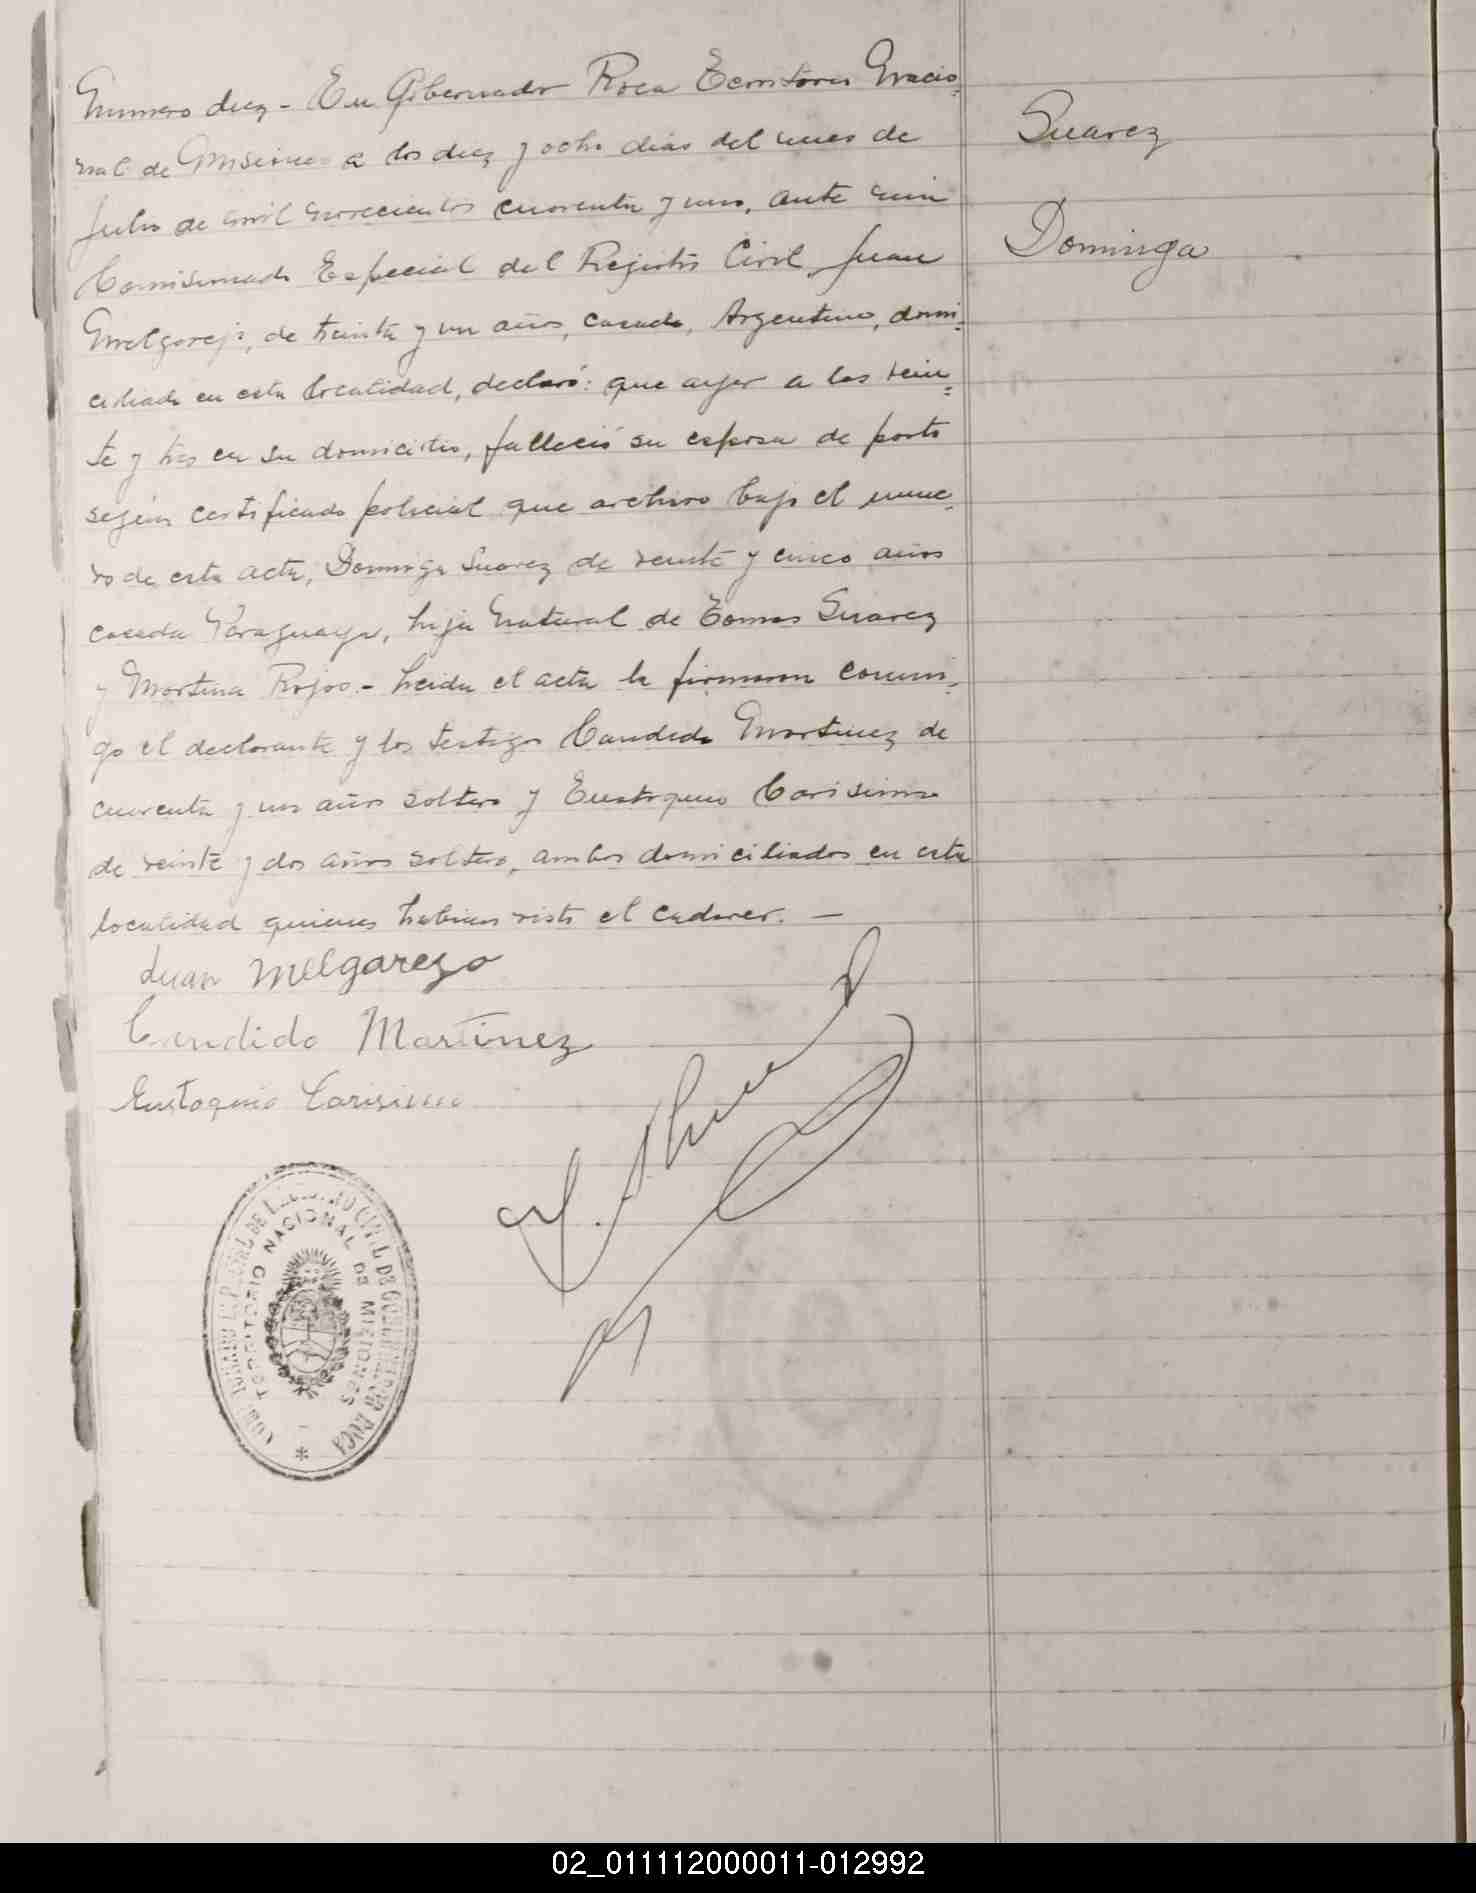 Numero diez - En Gobernador Roca Territorio Nacio=
nal de Misiones a los diez y ocho dias del mes de
Julio de mil novecientos cuarenta y uno, ante mi
Comisionado Especial del Registro Civil, Juan
Melgarejo, de treinta y un años, casado, Argentino, domi=
ciliado en esta localidad, declaró: que ayer a las vein=
te y tres en su domicilio, falleció su esposa de parto
según certificado policial que archivo bajo el nume=
ro de esta acta, Dominga Suarez de veinte y cinco años
casada Paraguaya, hija natural de Tomas Suarez
y Martina Rojas.- Leida el acta la firmaron conmi=
go el declarante y los testigos Candido Martinez de
cuarenta y un años soltero y Eustoquio Carisimo
de veinte y dos años soltero, ambos domiciliados en esta
localidad quienes habian visto el cadaver. -
Juan Melgarezo
Candido Martinez
Eustoquio Carisimo
Suarez
Dominga
REGISTRO CIVIL DE GOBERNADOR ROCA
TERRITORIO NACIONAL DE MISIONES
02_011112000011-012992